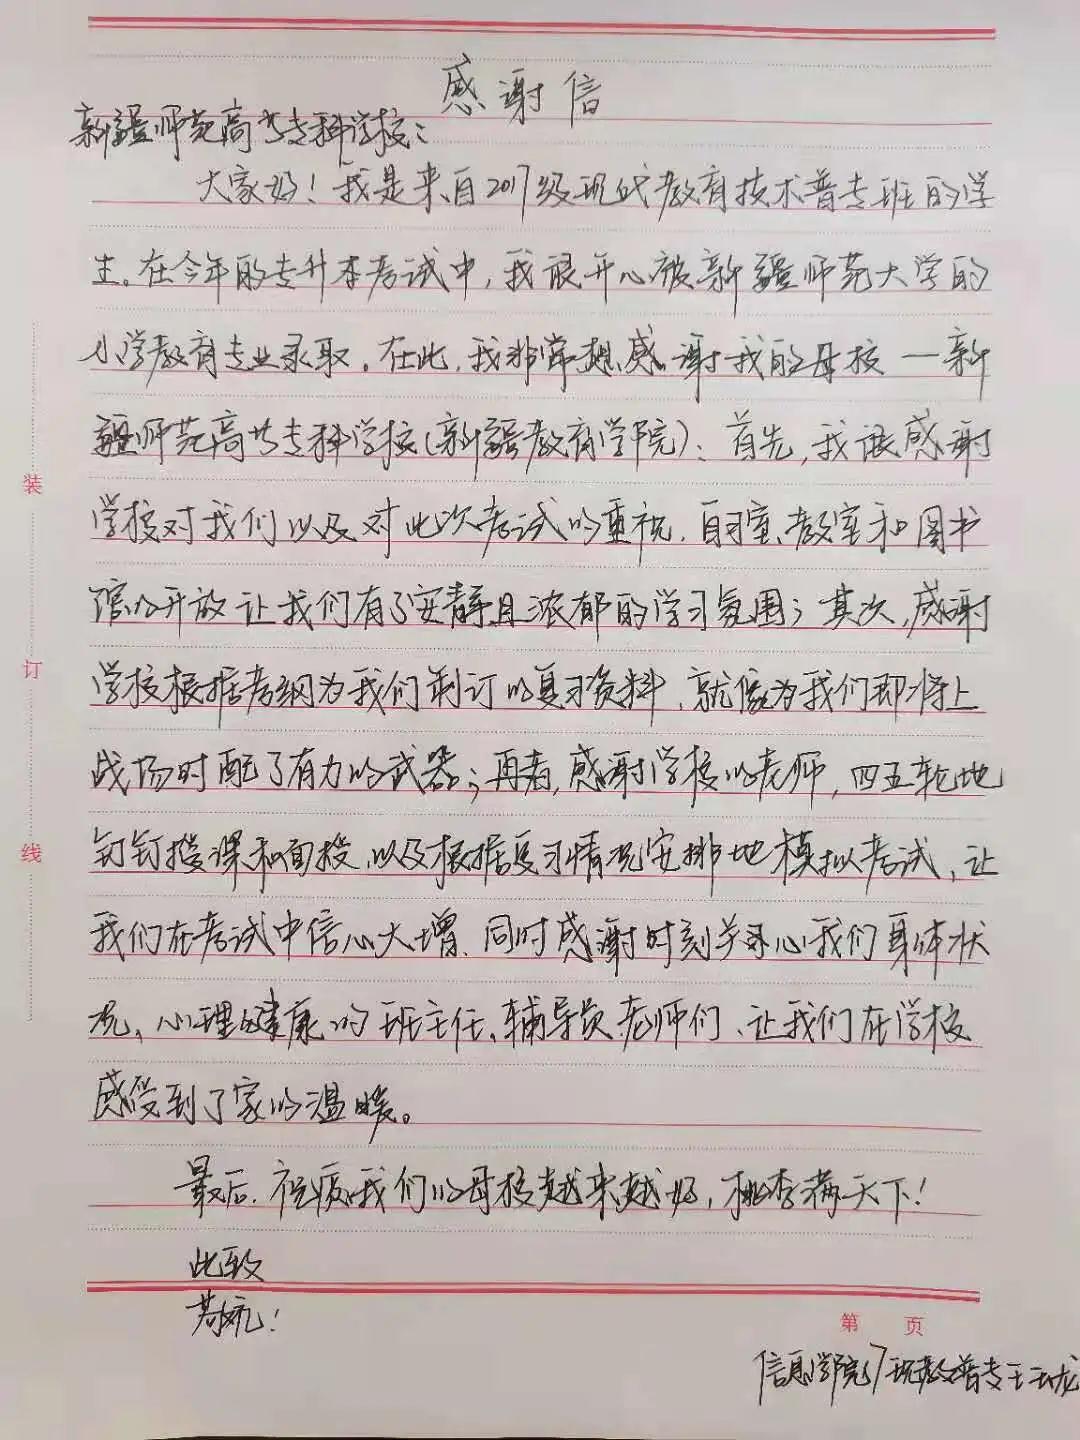 感谢信
新疆师范高等专科学校：
大家好！我是来自2017级现代教育技术普专班的学
生。在今年的专升本考试中，我很开心被新疆师范大学的
小学教育专业录取。在此，我非常想感谢我的母校—新
疆师范高等专科学校（新疆教育学院）：首先，我很感谢
学校对我们以及对此次考试的重视，自习室、教室和图书
馆的开放让我们有了安静且浓郁的学习氛围；其次，感谢
学校根据考纲为我们制订的复习资料，就像为我们即将上
战场时配了有力的武器；再者，感谢学校的老师，四五轮地
钉钉授课和面授，以及根据复习情况安排地模拟考试，让
我们在考试中信心大增，同时感谢时刻关心我们身体状
况、心理健康的班主任、辅导员老师们，让我们在学校
感受到了家的温暖。
最后，祝愿我们的母校越来越好，桃李满天下！
此致
敬礼！
装
订
线
第 页
信息学院17现教普专王